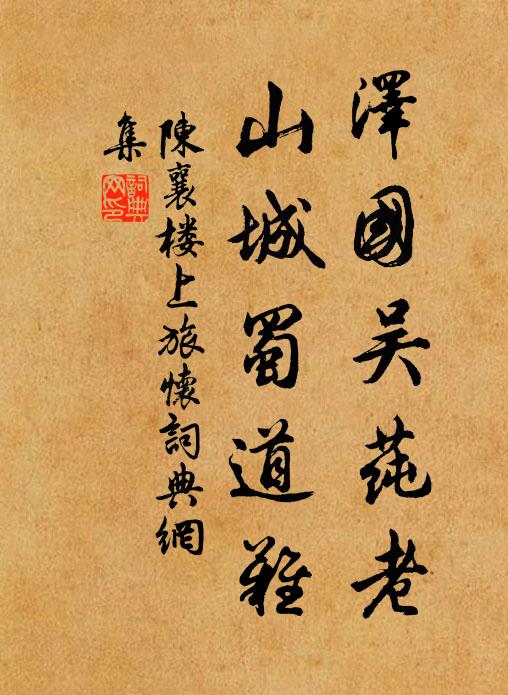 澤國吴蒓老
山城蜀道難
陳襄楼上旅懷詞典網
集
詞典
网印